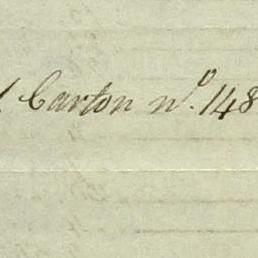 Carton n°. 148